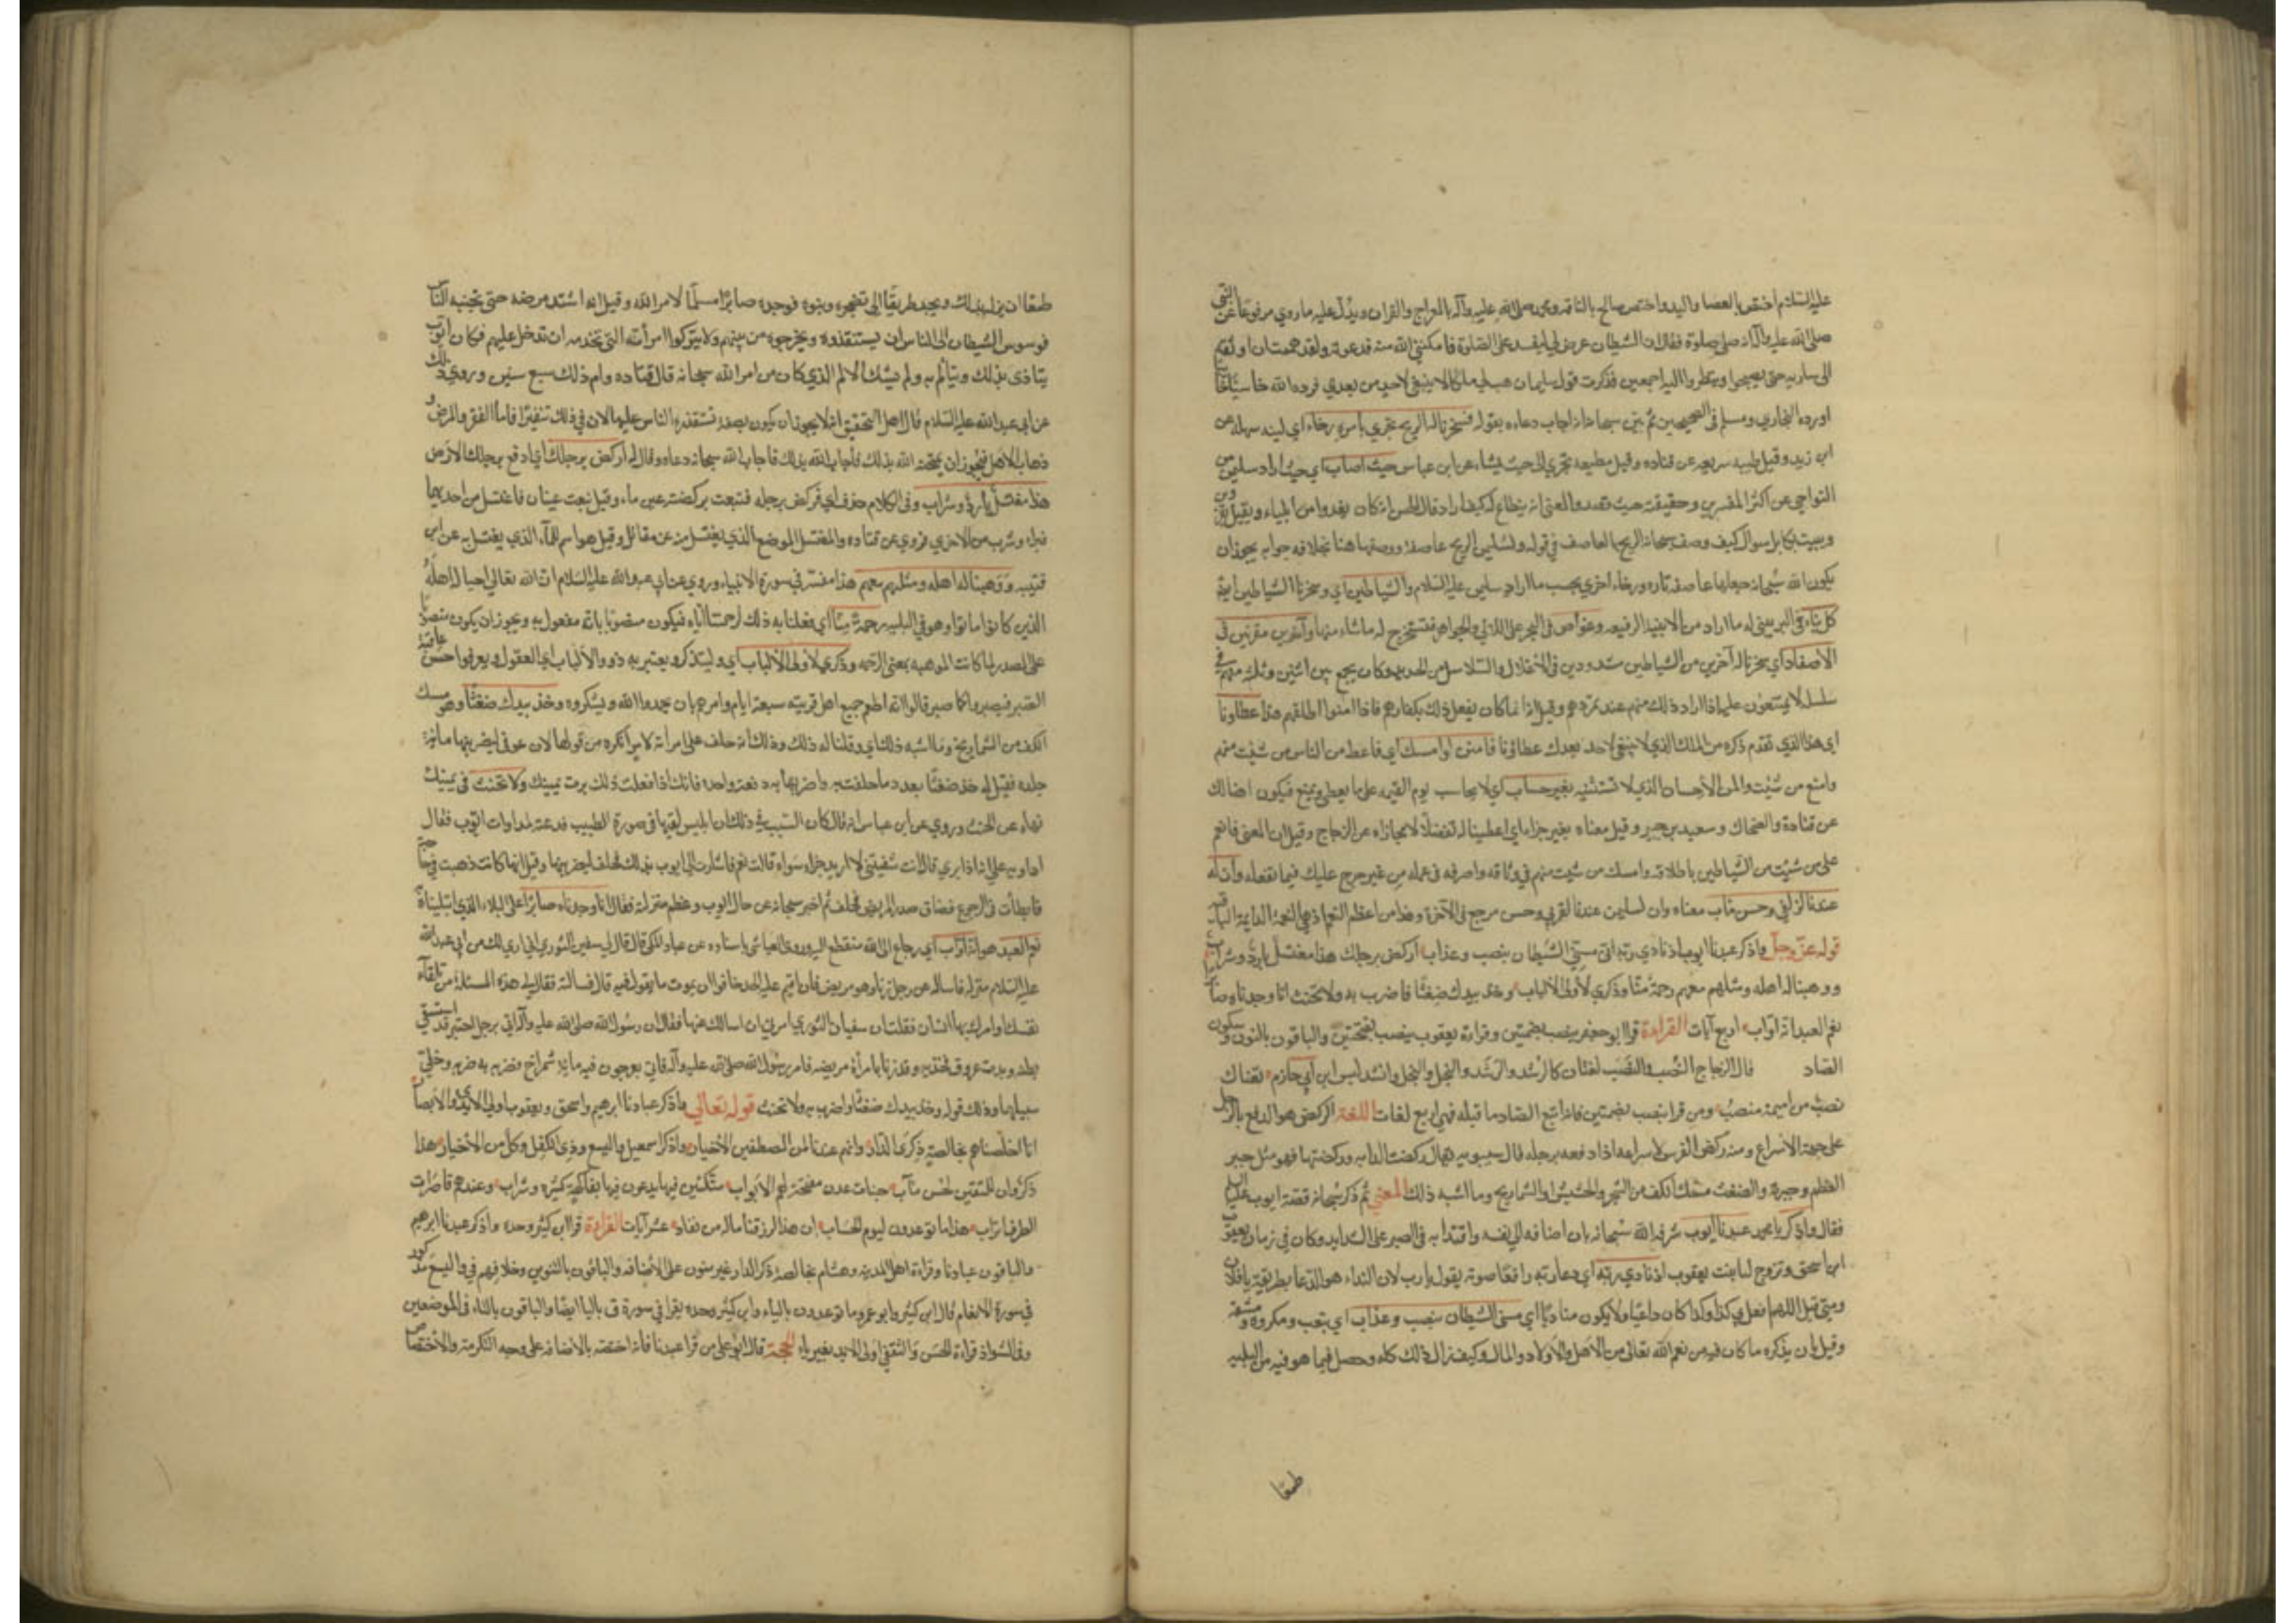 عليه السلام اختص بالعصا واليد واختص صالح بالناقة ومحمد صلى الله عليه وآله بالمعراج والقران ويدل عليه ما روي مرفوعا عن النبي
صلى الله عليه وآله انه صلى صلوة فقال ان الشيطان عرض لي ليفسد علي الصلوة فامكنني الله منه فدعوته ولقد هممت ان اوثقه
الى سارية حتى تصبحوا وتنظروا اليه اجمعين فذكرت قول سليمان هب لي ملكا لا ينبغي لاحد من بعدي فرده الله خاسئا خائبا
اورده البخاري ومسلم في الصحيحين ثم بين سبحانه انه اجاب دعاءه بقوله فسخرنا له الريح تجري بامره رخاء اي لينة سهلة عن
ابن زيد وقيل طيبة سريعة عن قتاده وقيل مطيعة تجري الى حيث يشاء عن ابن عباس حيث اصاب اي حيث اراد سليمن من
النواحي عن اكثر المفسرين وحقيقته حيث قصد والمعنى انه ينطاع له كيف اراد قال الحسن انه كان يغدوا من ايلياء ويقيل بقزوين
ويبيت بكابل سوال كيف وصف سبحانه الريح بالعاصف في قوله ولسليمن الريح عاصفة ووصفها هنا بخلافه جوابه يجوز ان
يكون الله سبحانه جعلها عاصفة تاره ورخاء اخري بحسب ما اراد سليمن عليه السلام والشياطين اي وسخرنا الشياطين ايضا
كل بناء في البر يبني له ما اراد من الابنية الرفيعه وغواص في البحر على اللالي والجواهر فتستخرج له ما شاء منها وآخرين مقرنين في
الاصفاد اي سخرنا له آخرين من الشياطين مشدودين في الاغلال والسلاسل من الحديد وكان يجمع بين اثنين وثلثة منهم في
سلسلة لا يمتنعون عليه اذا اراد ذلك منهم عند تمردهم وقيل انه انما كان يفعل ذلك بكفارهم فاذا امنوا اطلقهم هذا عطاونا
اي هذا الذي تقدم ذكره من الملك الذي لا ينبغي لاحد بعدك عطاؤنا فامنن او امسك اي فاعط من الناس من شئت منهم
وامنع من شئت والمن الاحسان الذي لا تستثنيه بغير حساب اي لا تحاسب يوم القيمه على ما يعطي ويمنع فيكون اهنا لك
عن قتادة والضحاك وسعيد بن جبير وقيل معناه بغير جزاء اي اعطيناكه تفضلا لا مجازاه عن الزجاج وقيل ان المعنى فانعم
على من شئت من الشياطين باطلاقه وامسك من شئت منهم في وثاقه واصرفه في عمله من غير حرج عليك فيما تفعله وان له
عندنا لزلفي وحسن مآب معناه وان لسليمن عندنا لقربي وحسن مرجع في الآخرة وهذا من اعظم النعم اذ هي النعمة الدايمة الباقيه
قوله عز وجل واذكر عبدنا ايوب اذ نادي ربه اني مسني الشيطان بنصب وعذاب اركض برجلك هذا مغتسل بارد وشراب
ووهبنا له اهله ومثلهم معهم رحمة منا وذكري لأولى الالباب وخذ بيدك ضغثا فاضرب به ولا تحنث انا وجدناه صابرا
نعم العبد انه اواب اربع آيات القراءة قرا ابو جعفر بنصب بضمتين وقراءة يعقوب بنصب بفتحتين والباقون بالنون وسكون
الصاد قال الزجاج النصب والنصب لغتان كالرشد والرشد والبخل والبخل وانشد لبشر ابن ابي حازم تعناك
نصب من اميمة منصب ومن قرا بنصب بضمتين فانه اتبع الصاد ما قبله فهي اربع لغات اللغة الركض هو الدفع بالرجل
على جهة الاسراع ومنه ركض الفرس لاسراعه اذا دفعه برجله قال سيبويه يقال ركضت الدابه وركضتها فهو مثل جبر
العظم وجبرته والضغث ملء الكف من الشجر والحشيش والشماريخ وما اشبه ذلك المعنى ثم ذكر سبحانه قصة ايوب عليه السلم
فقال واذكر يا محمد عبدنا ايوب شرفه الله سبحانه بان اضافه الى نفسه واقتدا به في الصبر على الشدايد وكان في زمان يعقوب
ابن اسحق وتزوج ليا بنت يعقوب اذ نادي ربه اي دعا ربه رافعا صوته يقول يا رب لان النداء هو الدعا بطريقة يا فلان
ومتي قيل اللهم افعل بي كذا وكذا كان داعيا ولا يكون مناديا اي مسني الشيطان بنصب وعذاب اي بتعب ومكروه ومشقة
وقيل بان يذكره ما كان فيه من نعم الله تعالى من الاهل والاولاد والمال وكيف زال ذلك كله وحصل فيما هو فيه من البلية
طمعا
طمعا ان يزله بذلك ويجد طريقا الى تضجره وتبرمه فوجده صابرا مسلما لامر الله وقيل انه اشتد مرضه حتى تجنبه الناس
فوسوس الشيطان الى الناس ان يستقذروه ويخرجوه من بينهم ولا يتركوا امرأته التي تخدمه ان تدخل عليهم فكان ايوب
يتاذى بذلك ويتألم به ولم يشك الالم الذي كان من امر الله سبحانه قال قتاده دام ذلك سبع سنين وروي ذلك
عن ابي عبد الله عليه السلام قال اهل التحقيق انه لا يجوز ان يكون بصفة تستقذره الناس عليها لان في ذلك تنفيرا فاما الفقر والمرض و
ذهاب الاهل فيجوز ان يمتحنه الله بذلك فاجاب الله سبحانه دعاءه وقال له اركض برجلك اي ادفع برجلك الارض
هذا مغتسل بارد وشراب وفي الكلام حذف اي فركض برجله فنبعت بركضته عين ماء وقيل نبعت عينان فاغتسل من احديهما
فبرا وشرب من الاخري فروي عن قتاده والمغتسل الموضع الذي يغتسل منه عن مقاتل وقيل هو اسم للماء الذي يغتسل به عن ابن
قتيبه ووهبنا له اهله ومثلهم معهم هذا مفسر في سورة الانبياء وروي عن ابي عبد الله عليه السلام ان الله تعالى احيا له اهله
الذين كانوا ماتوا وهو في البلية رحمة منا اي فعلنا به ذلك لرحمتنا اياه فيكون منصوبا بانه مفعول به ويجوز ان يكون منصوبا
على المصدر لما كانت الموهبه بمعنى الرحمه وذكري لأولى الالباب اي وليتذكر ويعتبر به ذوو الالباب اي العقول ويعرفوا حسن عاقبة
الصبر فيصبروا كما صبر قالوا انه اطعم جميع اهل قريته سبعة ايام وامرهم بان يحمدوا الله ويشكروه وخذ بيدك ضغثا وهو ملء
الكف من الشماريخ وما اشبه ذلك اي وقلنا له ذلك وذلك انه حلف على امرأته لامر انكره من قولها لان عوفي ليضربنها مائة
جلدة فقيل له خذ ضغثا بعدد ما حلفت به واضربها به دفعة واحدة فانك اذا فعلت ذلك برت يمينك ولا تحنث في يمينك
نهاه عن الحنث وروي عن ابن عباس انه قال كان السبب في ذلك ان ابليس لقيها في صورة الطبيب فدعته لمداوات ايوب فقال
اداويه على انه اذا برئ قال انت شفيتني لا اريد جزاء سواه قالت نعم فاشارت الى ايوب بذلك فحلف ليضربنها وقيل انها كانت ذهبت في حاجة
فابطأت في الرجوع فضاق صدر المريض فحلف ثم اخبر سبحانه عن حال ايوب وعظم منزلته فقال انا وجدناه صابرا على البلاء الذي ابتليناه
نعم العبد هو انه اواب اي رجاع الى الله منقطع اليه وروي العياشي باسناده عن عباد المكي قال قال لي سفين الثوري اني اري لك من ابي عبد الله
عليه السلام منزلة فاساله عن رجل زنا وهو مريض فان اقيم عليه الحد خافوا ان يموت ما يقول فيه قال فسالته فقال لي هذه المسئلة من تلقاء
نفسك او امرك بها انسان فقلت ان سفيان الثوري امرني ان اسالك عنها فقال ان رسول الله صلى الله عليه وآله اتي برجل احتبن قد استسقي
بطنه وبدت عروق فخذيه وقد زنا بامرأة مريضه فامر رسول الله صلى الله عليه وآله فاتي بعرجون فيه مائة شمراخ فضربه به ضربه وخلي
سبيلهما وذلك قوله وخذ بيدك ضغثا فاضرب به ولا تحنث قوله تعالى واذكر عبادنا ابرهيم واسحق ويعقوب اولى الايدي والابصار
انا اخلصناهم بخالصة ذكرى الدار وانهم عندنا لمن المصطفين الاخيار واذكر اسمعيل واليسع وذي الكفل وكل من الاخيار هذا
ذكر وان للمتقين لحسن مآب جنات عدن مفتحة لهم الابواب متكئين فيها يدعون فيها بفاكهة كثيره وشراب وعندهم قاصرات
الطرف اتراب هذا ما توعدون ليوم الحساب ان هذا لرزقنا ماله من نفاد عشر آيات القراءة قرا ابن كثير وحده واذكر عبدنا ابرهيم
والباقون عبادنا وقراءة اهل المدينه وهشام بخالصة ذكر الدار غير منون على الاضافه والباقون بالتنوين وخلافهم في واليسع مذكور
في سورة الانعام قال ابن كثير وابو عمرو ما توعدون بالياء وابن كثير وحده يقرا في سورة ق بالياء ايضا والباقون بالتاء في الموضعين
وفي الشواذ قراءة الحسن والثقفي اولى الايد بغير ياء الحجة قال ابو علي من قرا عبدنا فانه اختصه بالاضافه على وجه التكرمة والاختصاص